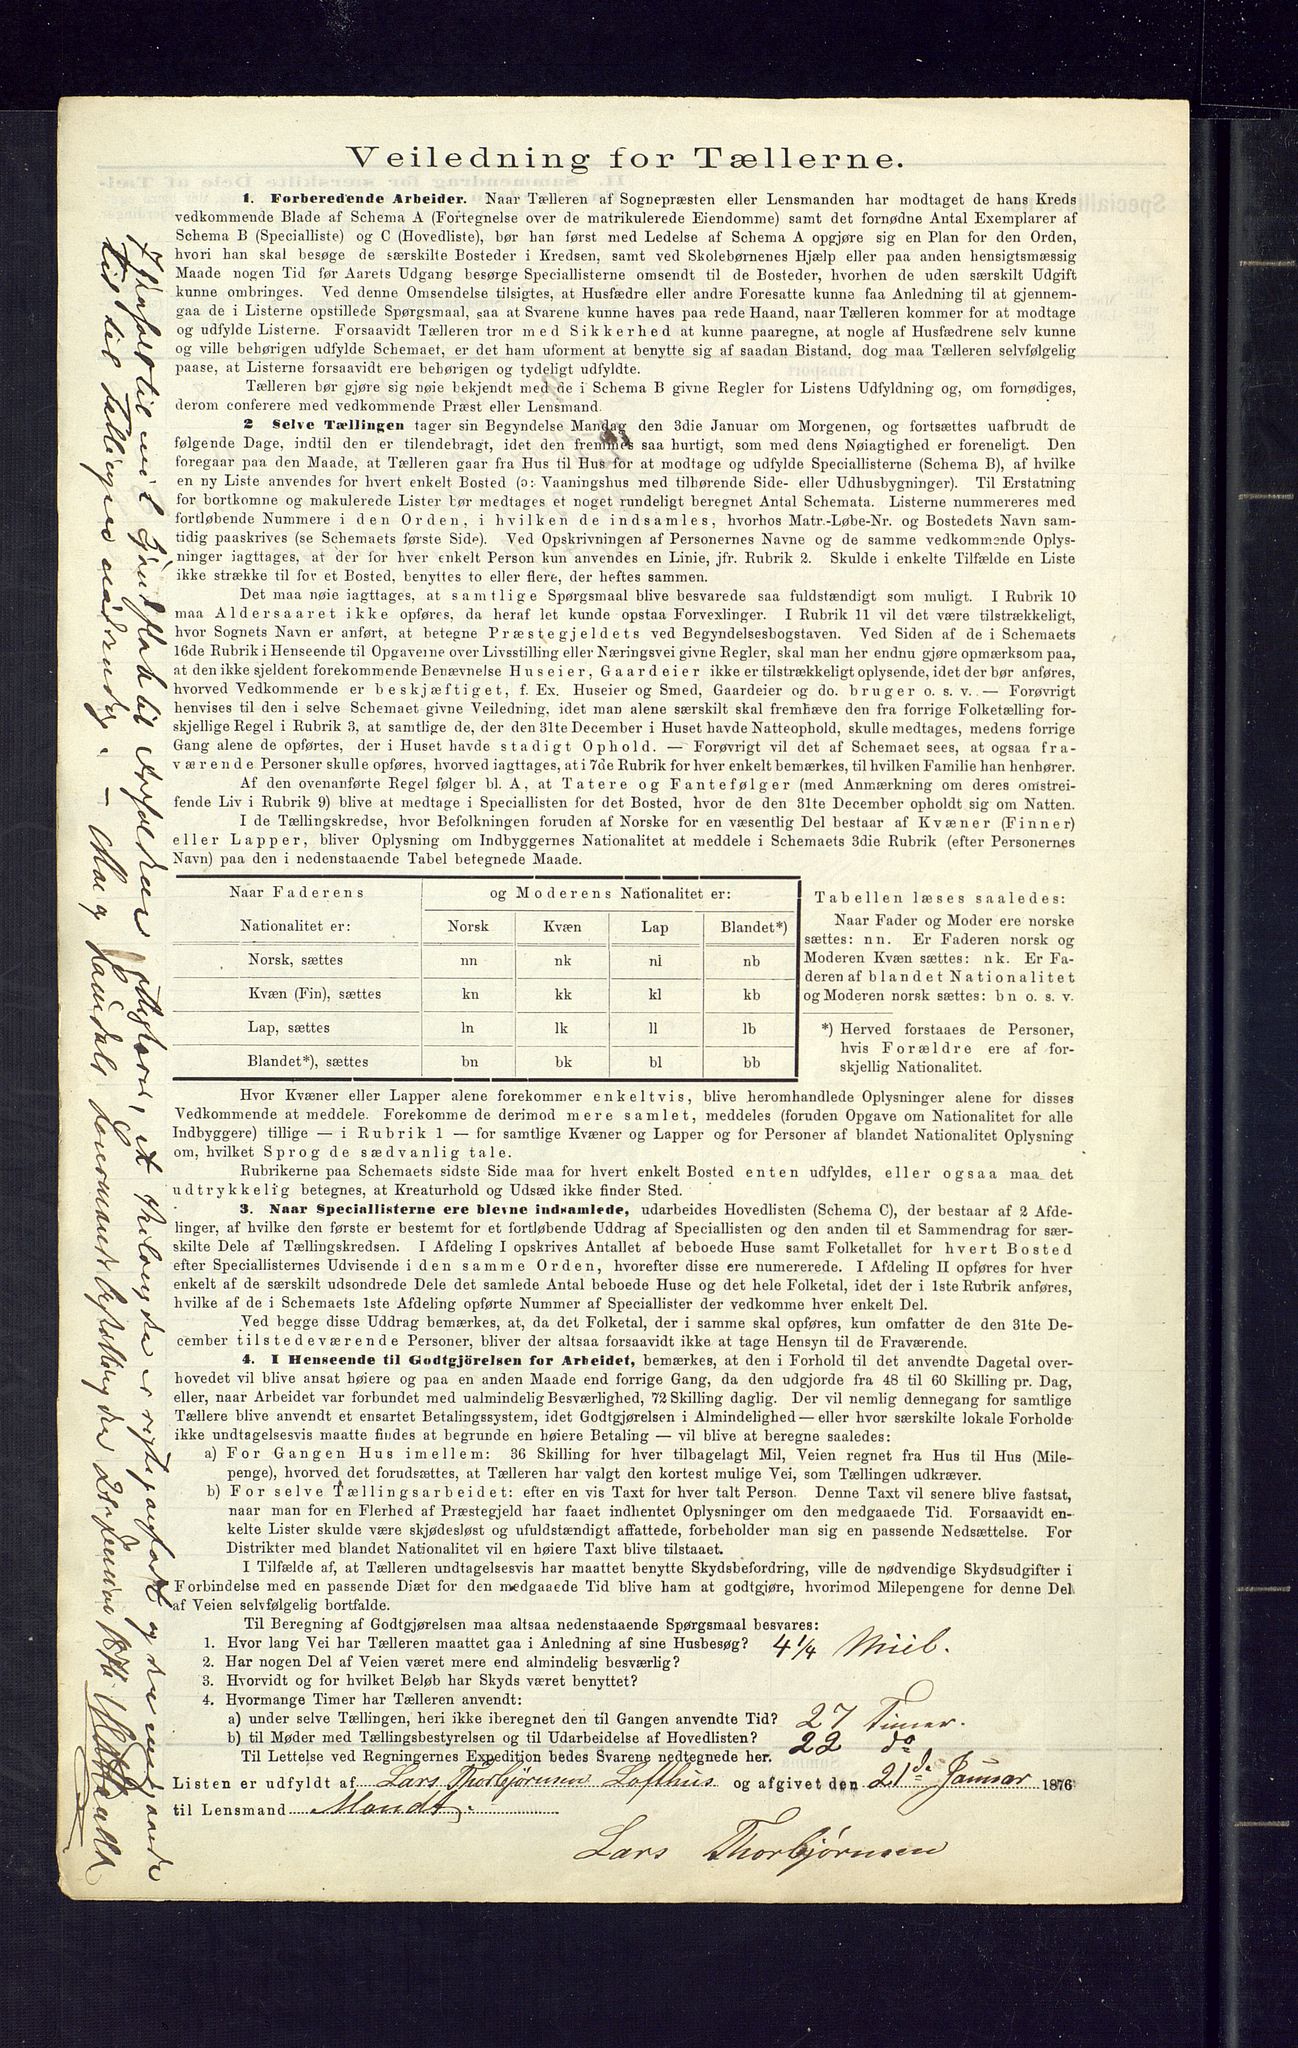 Veiledning for Tællerne.
1. Forberedende Arbeider. Naar Tælleren af Sognepræsten eller Lensmanden har modtaget de hans Kreds
vedkommende Blade af Schema A (Fortegnelse over de matrikulerede Eiendomme) samt det fornødne Antal Exemplarer af
Schema B (Specialliste) og C (Hovedliste), bør han først med Ledelse af Schema A opgjøre sig en Plan for den Orden,
hvori han skal besøge de særskilte Bosteder i Kredsen, samt ved Skolebørnenes Hjælp eller paa anden hensigtsmæssig
Maade nogen Tid før Aarets Udgang besørge Speciallisterne omsendt til de Bosteder, hvorhen de uden særskilt Udgift
kunne ombringes. Ved denne Omsendelse tilsigtes, at Husfædre eller andre Foresatte kunne faa Anledning til at gjennem-
gaa de i Listerne opstillede Spørgsmaal, saa at Svarene kunne haves paa rede Haand, naar Tælleren kommer for at modtage
og udfylde Listerne. Forsaavidt Tælleren tror med Sikkerhed at kunne paaregne, at nogle af Husfædrene selv kunne
og ville behørigen udfylde Schemaet, er det ham uforment at benytte sig af saadan Bistand, dog maa Tælleren selvfølgelig
paase, at Listerne forsaavidt ere behørigen og tydeligt udfyldte.
Tælleren bør gjøre sig nøie bekjendt med de i Schema B givne Regler for Listens Udfyldning og, om fornødiges,
derom conferere med vedkommende Præst eller Lensmand.
2 Selve Tællingen tager sin Begyndelse Mandag den 3die Januar om Morgenen, og fortsættes uafbrudt de
følgende Dage, indtil den er tilendebragt, idet den fremmes saa hurtigt, som med dens Nøiagtighed er foreneligt. Den
foregaar paa den Maade, at Tælleren gaar fra Hus til Hus for at modtage og udfylde Speciallisterne (Schema B), af hvilke
en ny Liste anvendes for hvert enkelt Bosted (ɔ: Vaaningshus med tilhørende Side- eller Udhusbygninger). Til Erstatning
for bortkomne og makulerede Lister bør medtages et noget rundeligt beregnet Antal Schemata. Listerne nummereres med
fortløbende Nummere i den Orden, i hvilken de indsamles, hvorhos Matr.-Løbe-Nr. og Bostedets Navn sam-
tidig paaskrives (se Schemaets første Side). Ved Opskrivningen af Personernes Navne og de samme vedkommende Oplys-
ninger iagttages, at der for hver enkelt Person kun anvendes en Linie, jfr. Rubrik 2. Skulde i enkelte Tilfælde en Liste
ikke strække til for et Bosted, benyttes to eller flere, der heftes sammen.
Det maa nøie iagttages, at samtlige Spørgsmaal blive besvarede saa fuldstændigt som muligt. I Rubrik 10
maa Aldersaaret ikke opføres, da heraf let kunde opstaa Forvexlinger. I Rubrik 11 vil det være tilstrækkeligt,
hvor Sognets Navn er anført, at betegne Præstegjeldets ved Begyndelsesbogstaven. Ved Siden af de i Schemaets
16de Rubrik i Henseende til Opgaverne over Livsstilling eller Næringsvei givne Regler, skal man her endnu gjøre opmærksom paa,
at den ikke sjeldent forekommende Benævnelse Huseier, Gaardeier ikke er tilstrækkeligt oplysende, idet der bør anføres,
hvorved Vedkommende er beskjæftiget, f. Ex. Huseier og Smed, Gaardeier og do. bruger o. s. v. — Forøvrigt
henvises til den i selve Schemaet givne Veiledning, idet man alene særskilt skal fremhæve den fra forrige Folketælling for-
skjellige Regel i Rubrik 3, at samtlige de, der den 31te December i Huset havde Natteophold, skulle medtages, medens forrige
Gang alene de opførtes, der i Huset havde stadigt Ophold. — Forøvrigt vil det af Schemaet sees, at ogsaa fra-
værende Personer skulle opføres, hvorved iagttages, at i 7de Rubrik for hver enkelt bemærkes, til hvilken Familie han henhører.
Af den ovenanførte Regel følger bl. A, at Tatere og Fantefølger (med Anmærkning om deres omstrei-
fende Liv i Rubrik 9) blive at medtage i Speciallisten for det Bosted, hvor de den 31te December opholdt sig om Natten.
I de Tællingskredse, hvor Befolkningen foruden af Norske for en væsentlig Del bestaar af Kvæner (Finner)
eller Lapper, bliver Oplysning om Indbyggernes Nationalitet at meddele i Schemaets 3die Rubrik (efter Personernes
Navn) paa den i nedenstaaende Tabel betegnede Maade.
Naar Faderens og Moderens Nationalitet er:
Nationalitet er: Norsk Kvæn Lap Blandet*)
Norsk, sættes nn nk nl nb
Kvæn (Fin), sættes kn kk kl kb
Lap, sættes ln lk ll lb
Blandet*), sættes bn bk bl bb
Tabellen læses saaledes:
Naar Fader og Moder ere norske
sættes: nn. Er Faderen norsk og
Moderen Kvæn sættes: nk. Er Fa-
deren af blandet Nationalitet
og Moderen norsk sættes: bn o. s. v.
*) Herved forstaaes de Personer,
hvis Forældre ere af for-
skjellig Nationalitet.
Hvor Kvæner eller Lapper alene forekommer enkeltvis, blive heromhandlede Oplysninger alene for disses
Vedkommende at meddele. Forekomme de derimod mere samlet, meddeles (foruden Opgave om Nationalitet for alle
Indbyggere) tillige — i Rubrik 1 — for samtlige Kvæner og Lapper og for Personer af blandet Nationalitet Oplysning
om, hvilket Sprog de sædvanlig tale.
Rubrikerne paa Schemaets sidste Side maa for hvert enkelt Bosted enten udfyldes, eller ogsaa maa det
udtrykkelig betegnes, at Kreaturhold og Udsæd ikke finder Sted.
3. Naar Speciallisterne ere blevne indsamlede, udarbeides Hovedlisten (Schema C), der bestaar af 2 Afde-
linger, af hvilke den første er bestemt for et fortløbende Uddrag af Speciallisten og den anden til et Sammendrag for sær-
skilte Dele af Tællingskredsen. I Afdeling I opskrives Antallet af beboede Huse samt Folketallet for hvert Bosted
efter Speciallisternes Udvisende i den samme Orden, hvorefter disse ere numererede. I Afdeling II opføres for hver
enkelt af de særskilt udsondrede Dele det samlede Antal beboede Huse og det hele Folketal, idet der i 1ste Rubrik anføres,
hvilke af de i Schemaets 1ste Afdeling opførte Nummer af Speciallister der vedkomme hver enkelt Del.
Ved begge disse Uddrag bemærkes, at, da det Folketal, der i samme skal opføres, kun omfatter de den 31te De-
cember tilstedeværende Personer, bliver der altsaa forsaavidt ikke at tage Hensyn til de Fraværende.
4. I Henseende til Godtgjörelsen for Arbeidet, bemærkes, at den i Forhold til det anvendte Dagetal over-
hovedet vil blive ansat høiere og paa en anden Maade end forrige Gang, da den udgjorde fra 48 til 60 Skilling pr. Dag,
eller, naar Arbeidet var forbundet med ualmindelig Besværlighed, 72 Skilling daglig. Der vil nemlig dennegang for samtlige
Tællere blive anvendt et ensartet Betalingssystem, idet Godtgjørelsen i Almindelighed — eller hvor særskilte lokale Forholde
ikke undtagelsesvis maatte findes at begrunde en høiere Betaling — vil blive at beregne saaledes:
a) For Gangen Hus imellem: 36 Skilling for hver tilbagelagt Mil, Veien regnet fra Hus til Hus (Mile-
penge), hvorved det forudsættes, at Tælleren har valgt den kortest mulige Vei, som Tællingen udkræver.
b) For selve Tællingsarbeidet: efter en vis Taxt for hver talt Person. Denne Taxt vil senere blive fastsat,
naar man for en Flerhed af Præstegjeld har faaet indhentet Oplysninger om den medgaaede Tid. Forsaavidt en-
kelte Lister skulde være skjødesløst og ufuldstændigt affattede, forbeholder man sig en passende Nedsættelse. For
Distrikter med blandet Nationalitet vil en høiere Taxt blive tilstaaet.
I Tilfælde af, at Tælleren undtagelsesvis har maattet benytte Skydsbefordring, ville de nødvendige Skydsudgifter i
Forbindelse med en passende Diæt for den medgaaede Tid blive ham at godtgjøre, hvorimod Milepengene for denne Del
af Veien selvfølgelig bortfalde.
Til Beregning af Godtgjørelsen maa altsaa nedenstaaende Spørgsmaal besvares:
1. Hvor lang Vei har Tælleren maattet gaa i Anledning af sine Husbesøg? 4¼ Miil.
2. Har nogen Del af Veien været mere end almindelig besværlig?
3. Hvorvidt og for hvilket Beløb har Skyds været benyttet?
4. Hvormange Timer har Tælleren anvendt:
a) under selve Tællingen, heri ikke iberegnet den til Gangen anvendte Tid? 27 Timer.
b) til Møder med Tællingsbestyrelsen og til Udarbeidelse af Hovedlisten? 22 do
Til Lettelse ved Regningernes Expedition bedes Svarene nedtegnede her.
Listen er udfyldt af Lars Thorbjørnsen Lofthus og afgivet den 21de Januar 1876
til Lensmand Mandt.
Lars Thorbjørnsen
I Henhold til mit Kjendskab til Forholdene attesteres, at Veilængden er rigtig anført og den medgaaede
Tid til Tællingen nødvendig. — Moe og Lensmandsbestilling den 21 Januar 1876.